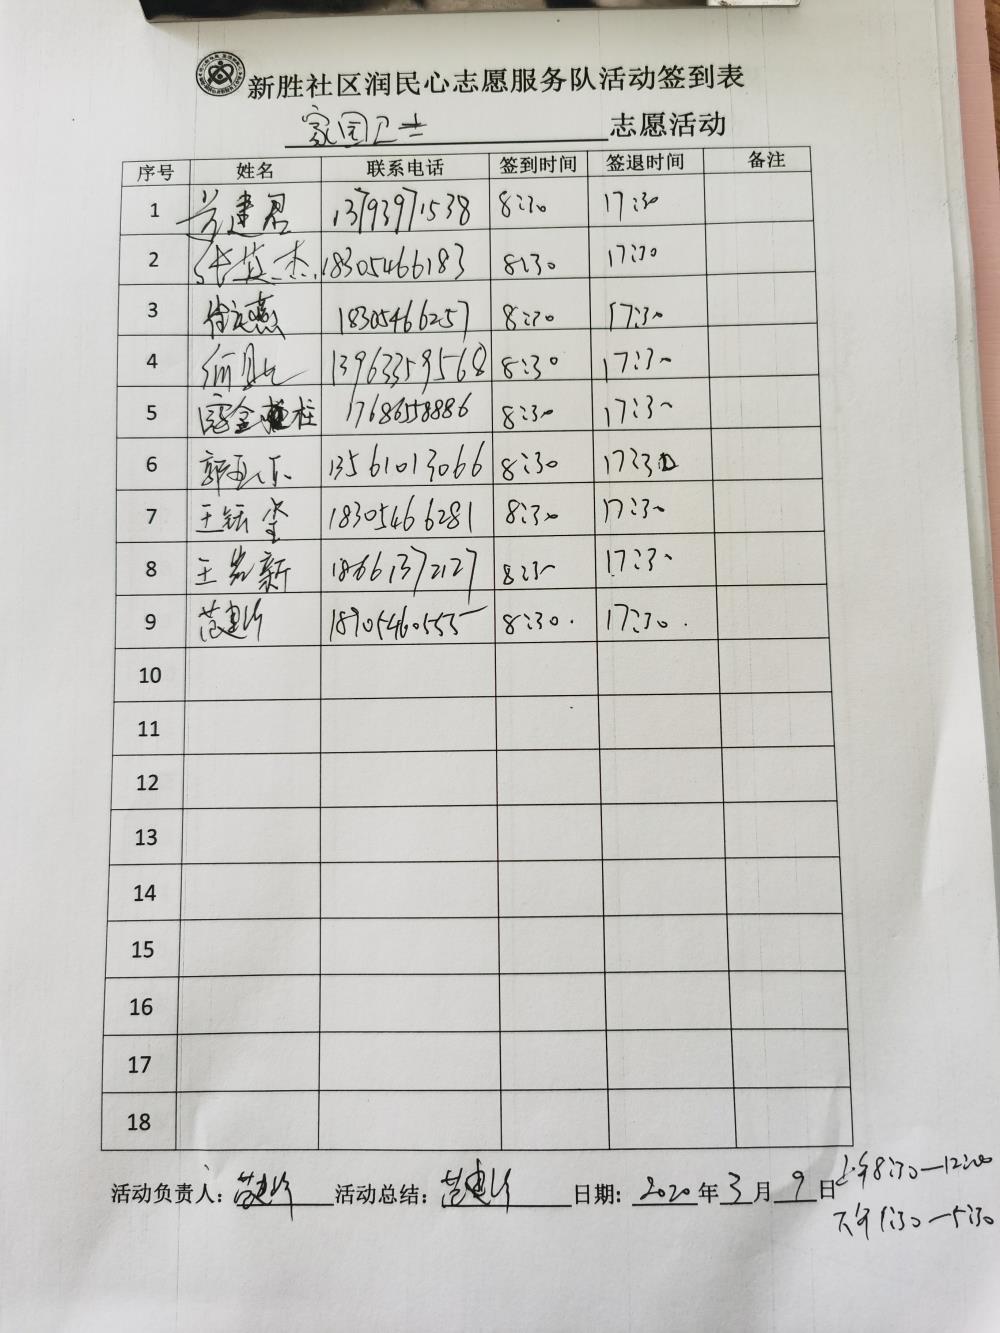 新胜社区润民心志愿服务队活动签到表
家园卫士 志愿活动
序号 姓名 联系电话 签到时间 签退时间 备注
1 建君 13793971538 8:30 17:30
2 张英杰 18305466183 8:30 17:30
3 徐元燕 18305466257 8:30 17:30
4 13963359568 8:30 17:30
5 金柱 17686558886 8:30 17:30
6 郭 13561013066 8:30 17:30
7 王钰莹 18305466281 8:30 17:30
8 王岩新 18661372127 8:30 17:30
9 范建 18705460555 8:30 17:30
10
11
12
13
14
15
16
17
18
活动负责人: 范建 活动总结: 范建 日期: 2020年3月9日
上午8:30—12:00
下午1:30—5:30